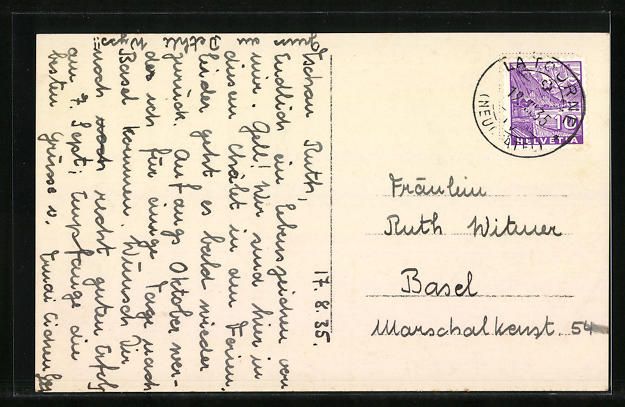 17.8.35.
Tschau Ruth,
Endlich ein Lebenszeichen von
mir. Gell! Wir sind hier in
diesem Châlet in den Ferien.
Leider geht es bald wieder
zurück. Anfangs Oktober wer-
de ich für einige Tage nach
Basel kommen. Wünsch Dir
noch recht guten Erfolg
am 7. Sept; Empfange die
besten Grüsse v. Trudi
LA TOURNE
18.
35
(NEUCHATEL)
10
HELVETIA
Fräulein
Ruth Witmer
Basel
Marschalkenst. 54